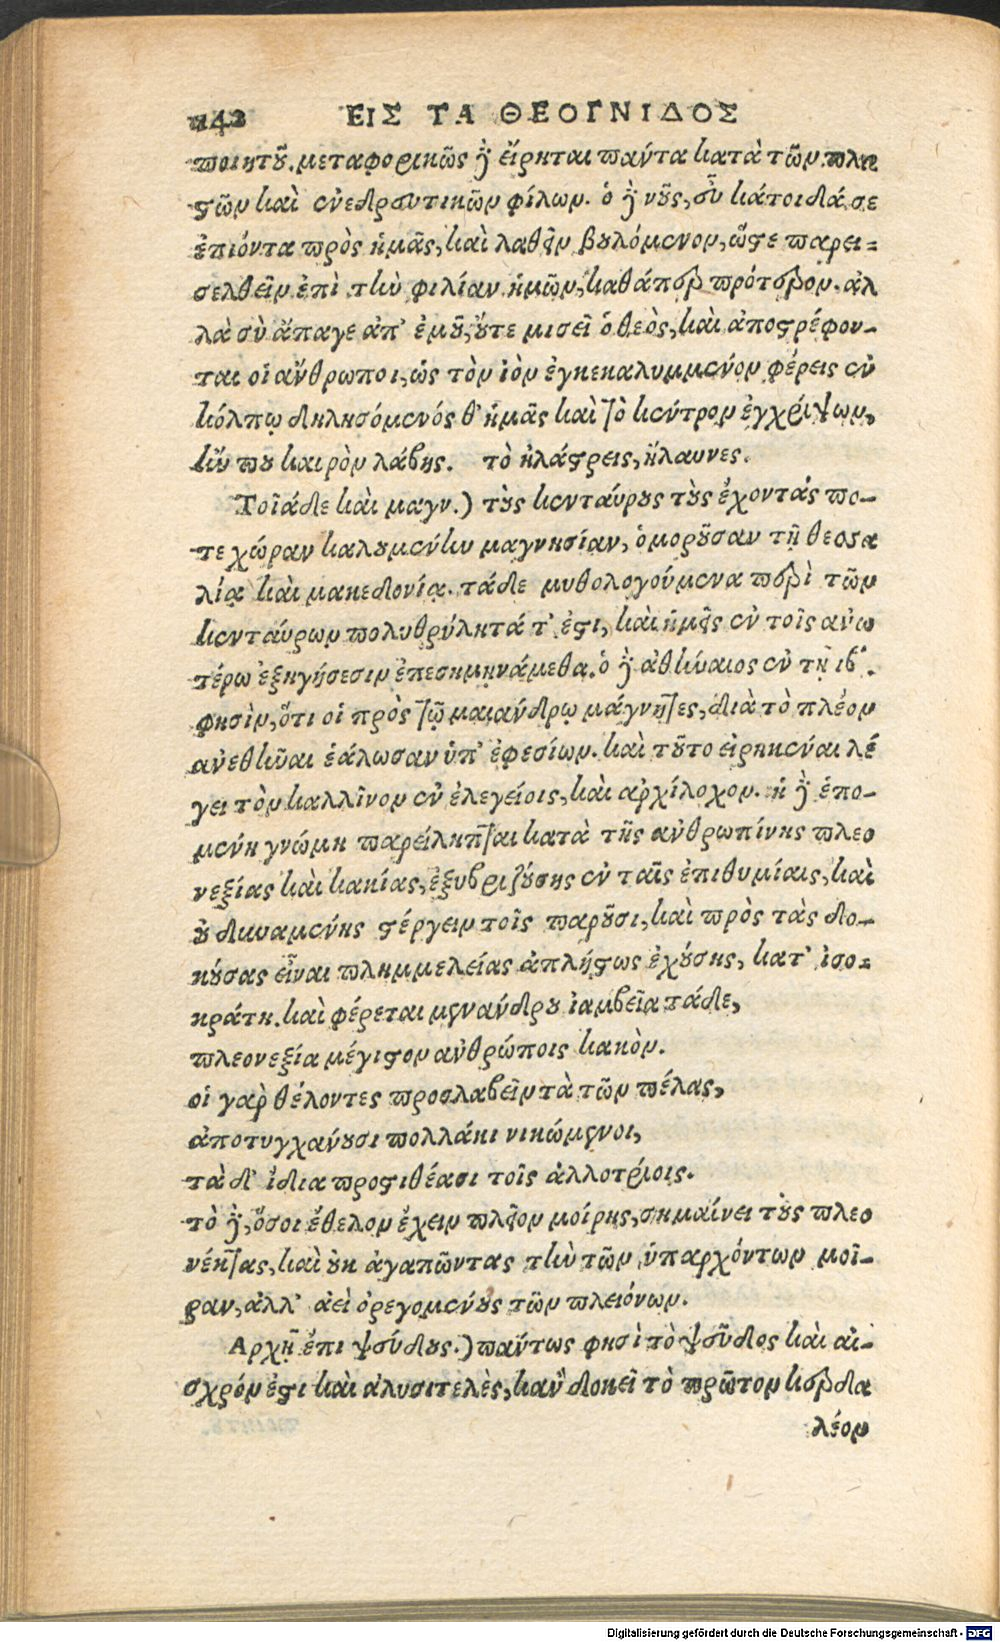 142 ΕΙΣ ΤΑ ΘΕΟΓΝΙΔΟΣ
ποιητοῦ. μεταφορικῶς δὲ εἴρηται πάντα κατὰ τῶν πλα
στῶν καὶ ἐνεδρευτικῶν φίλων. ὁ δὲ νοῦς, εὖ κάτοιδά σε
ἐπιόντα πρὸς ἡμᾶς, καὶ λαθεῖν βουλόμενον, ὥστε παρει=
σελθεῖν ἐπὶ τὴν φιλίαν ἡμῶν, καθάπερ πρότερον. ἀλ
λὰ σὺ ἄπαγε ἀπ' ἐμοῦ, ὅν τε μισεῖ ὁ θεὸς, καὶ ἀποστρέφον-
ται οἱ ἄνθρωποι, ὡς τὸν ἰὸν ἐγκεκαλυμμένον φέρεις ἐν
κόλπῳ δηλησόμενός θ' ἡμᾶς καὶ τὸ κέντρον ἐγχρίψων,
ἤν που καιρὸν λάβῃς. τὸ ἠλάστρεις, ἤλαυνες.
Τοῖάδε καὶ μαγν.) τοὺς κενταύρους τοὺς ἔχοντάς πο-
τε χώραν καλουμένην μαγνησίαν, ὁμοροῦσαν τῇ θεσσα
λίᾳ καὶ μακεδονίᾳ. τάδε μυθολογούμενα περὶ τῶν
κενταύρων πολυθρύλητά τ' ἐστι, καὶ ἡμεῖς ἐν τοῖς ἀνω
τέρω ἐξηγήσεσιν ἐπεσημηνάμεθα. ὁ δὲ ἀθήναιος ἐν τῇ ιβ'.
φησὶν, ὅτι οἱ πρὸς τῷ μαιάνδρῳ μάγνητες, διὰ τὸ πλέον
ἀνεθῆναι ἑάλωσαν ὑπ' ἐφεσίων. καὶ τοῦτο εἰρηκέναι λέ
γει τὸν καλλῖνον ἐν ἐλεγείοις, καὶ ἀρχίλοχον. ἡ δὲ ἑπο-
μένη γνώμη παρείληπται κατὰ τῆς ἀνθρωπίνης πλεο
νεξίας καὶ κακίας, ἐξυβριζούσης ἐν ταῖς ἐπιθυμίαις, καὶ
οὐ δυναμένης στέργειν τοῖς παροῦσι, καὶ πρὸς τὰς δο-
κούσας εἶναι πλημμελείας ἀπλήστως ἐχούσης, κατ' ἰσο=
κράτη. καὶ φέρεται μενάνδρου ἰαμβεῖα τάδε,
πλεονεξία μέγιστον ἀνθρώποις κακὸν.
οἱ γὰρ θέλοντες προσλαβεῖν τὰ τῶν πέλας,
ἀποτυγχάνουσι πολλάκι νικώμενοι,
τὰ δ' ἴδια προστιθέασι τοῖς ἀλλοτρίοις.
τὸ δὲ, ὅσοι ἔθελον ἔχειν πλεῖον μοίρης, σημαίνει τοὺς πλεο
νέκτας, καὶ οὐκ ἀγαπῶντας τὴν τῶν ὑπαρχόντων μοῖ-
ραν, ἀλλ' ἀεὶ ὀρεγομένους τῶν πλειόνων.
Αρχῇ ἔπι ψεύδους.) πάντως φησὶ τὸ ψεῦδος καὶ αἰ-
σχρόν ἐστι καὶ ἀλυσιτελὲς, κἂν δοκεῖ τὸ πρῶτον κερδα
λέον
Digitalisierung gefördert durch die Deutsche Forschungsgemeinschaft - DFG